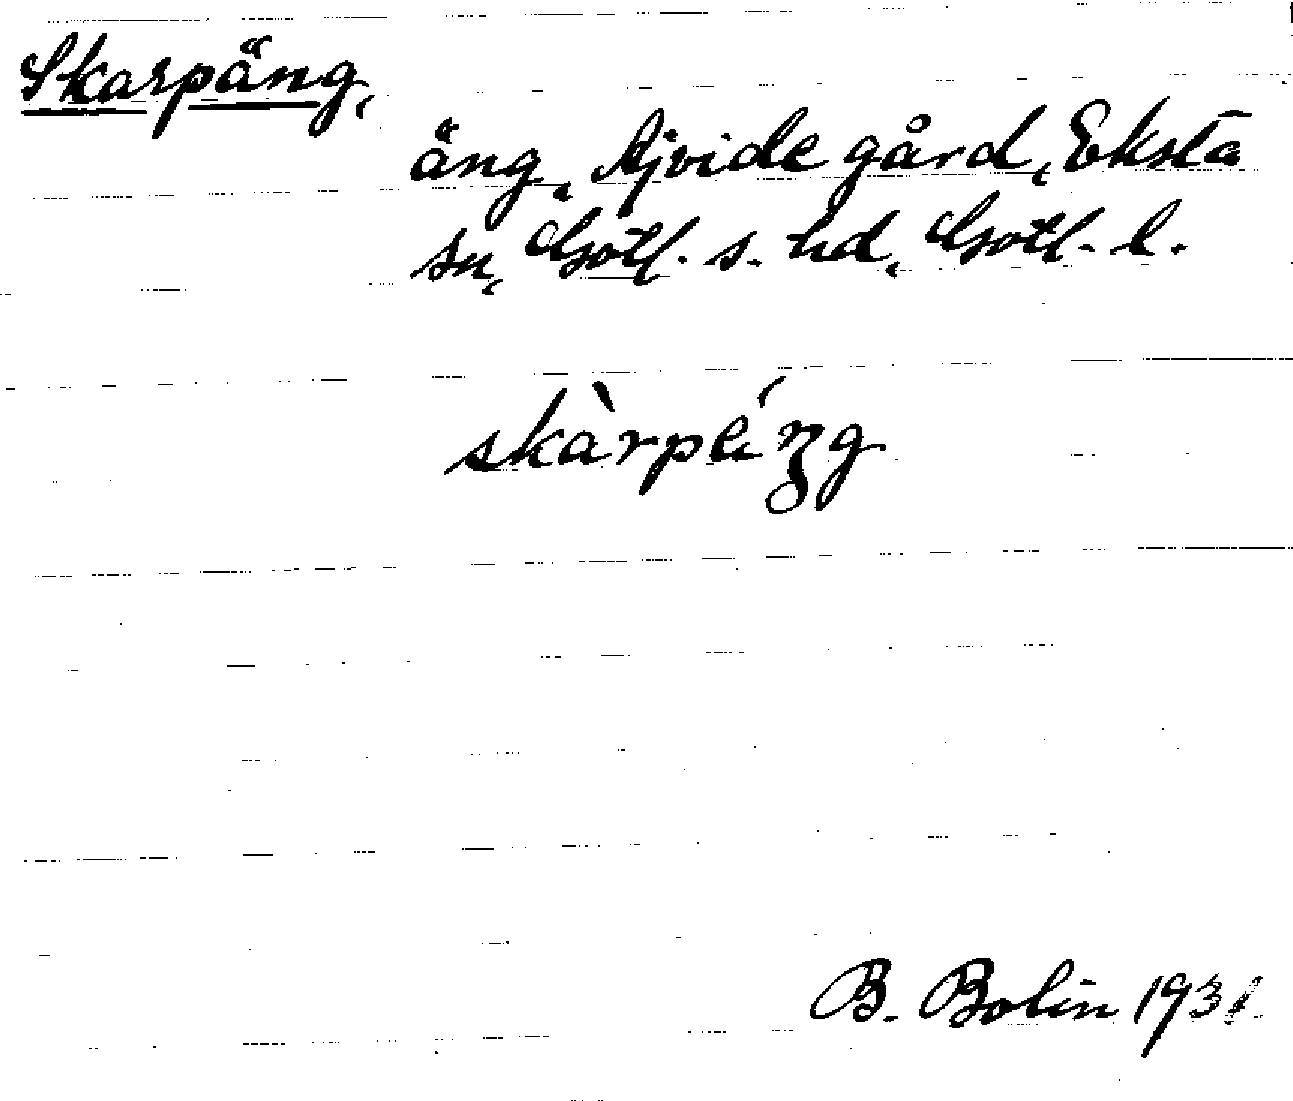 Skarpäng,
äng, Ajvide gård, Eksta
sn, Gotl. s. hd, Gotl. l.
B. Bolin 1931